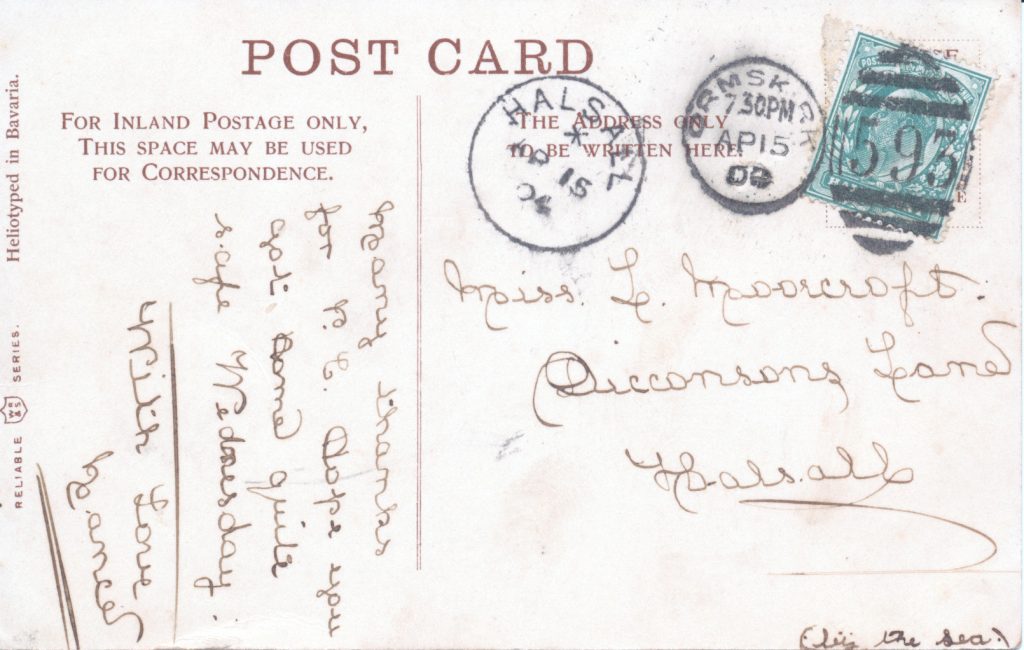 POST CARD
FOR INLAND POSTAGE ONLY,
THIS SPACE MAY BE USED
FOR CORRESPONDENCE.
THE ADDRESS ONLY
BE WRITTEN HERE.
HALSALL
AP 15
04
ORMSKIRK
7.30PM
AP 15
593
Heliotyped in Bavaria.
RELIABLE
WR
&S
SERIES.
Many thanks
for P. C. Hope you
got home quite
safe Wednesday.
With Love
Miss. L. Moorcroft.
Dicconsons Lane
Halsall
the Sea.)